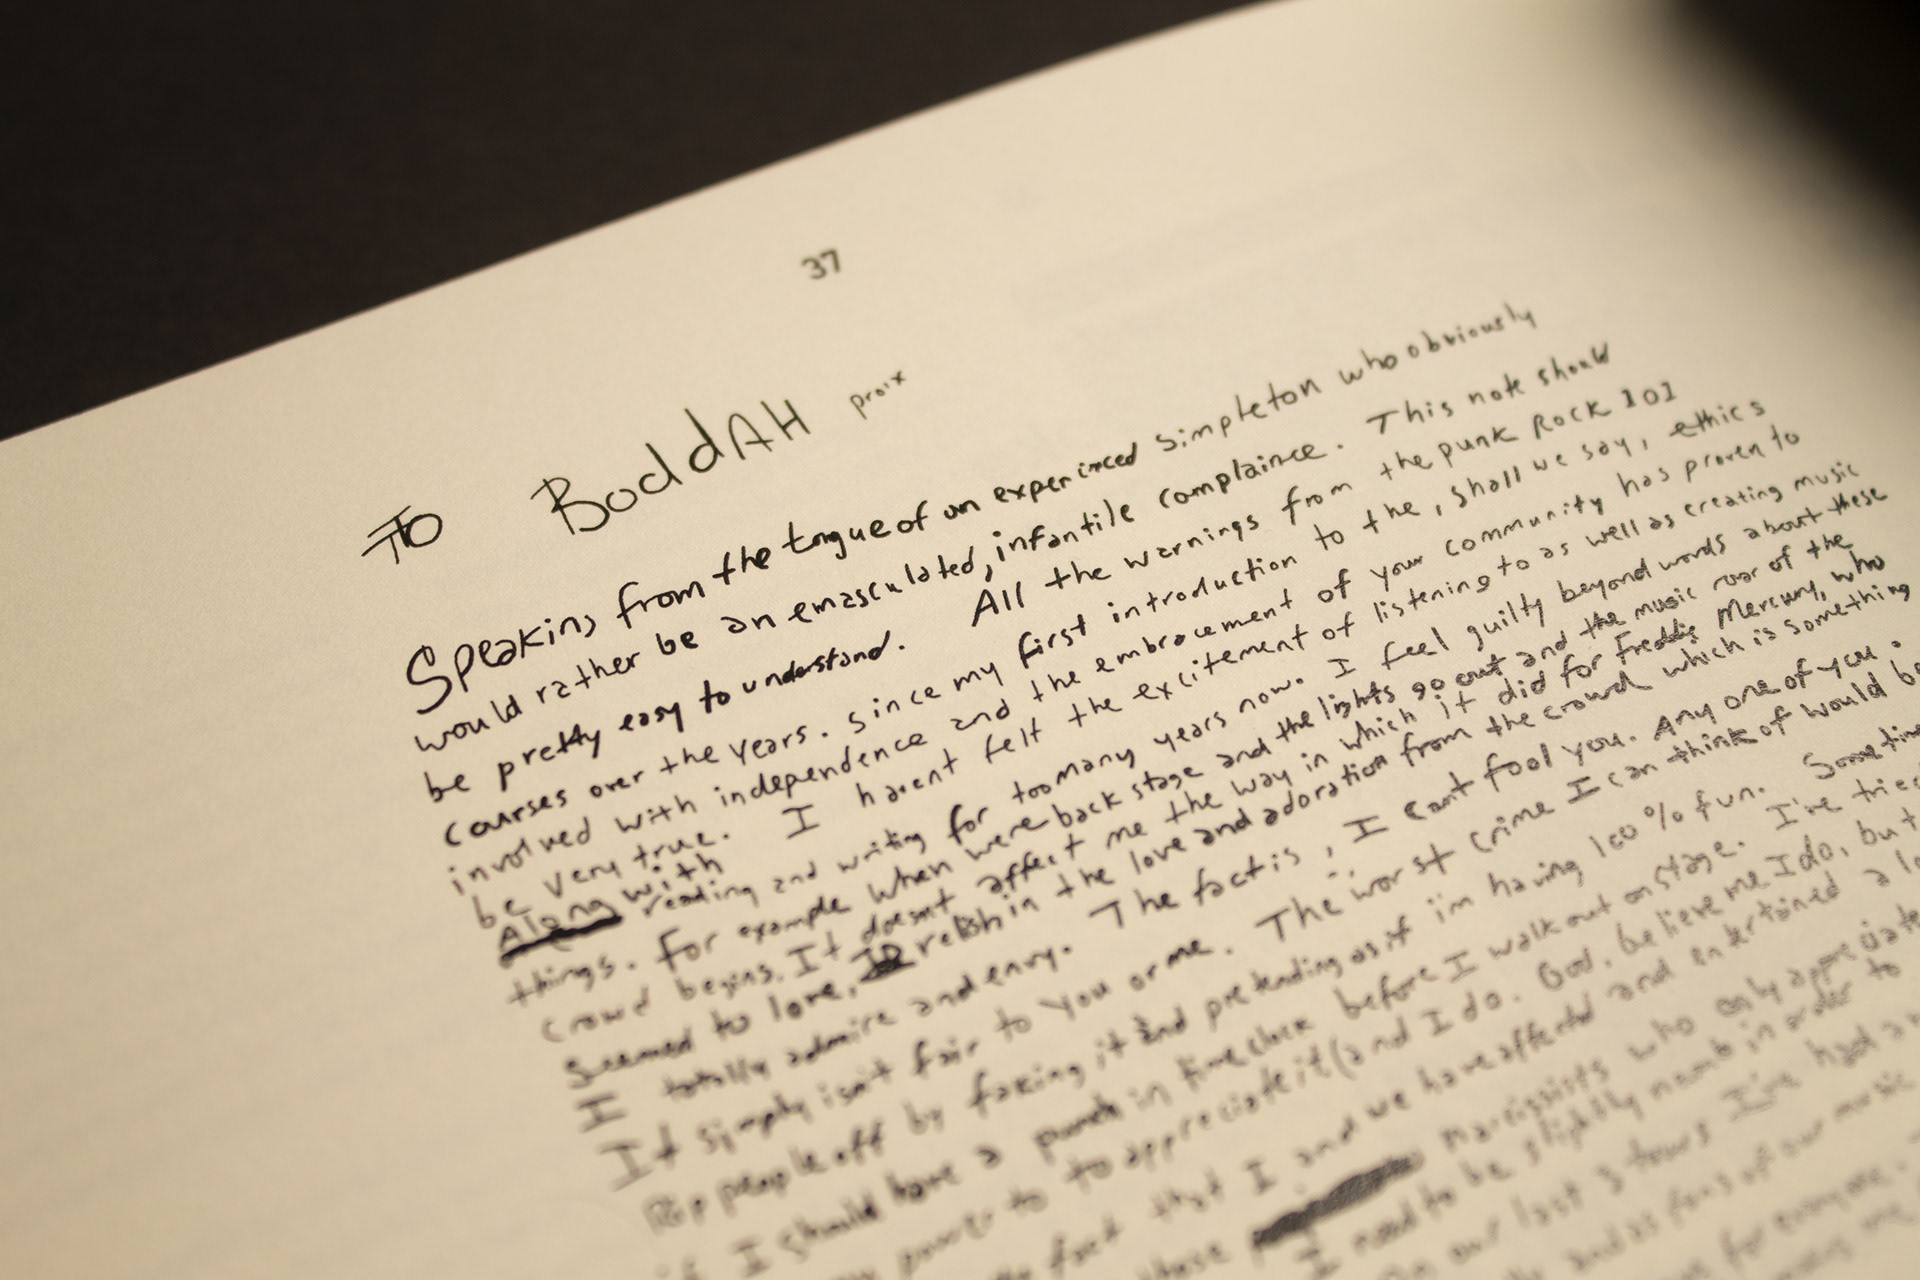 37
To BoddAH proix
Speaking from the tongue of an experinced simpleton who obviously
would rather be an emasculated, infantile complaince. This note should
be pretty easy to understand. All the warnings from the punk Rock 101
courses over the years. since my first introduction to the, shall we say, ethics
involved with independence and the embracement of your community has proven to
be very true. I havent felt the excitement of listening to as well as creating music
Along with reading and writing for too many years now. I feel guilty beyond words about these
things. For example when were back stage and the lights go out and the music roar of the
crowd begins. It doesnt affect me the way in which it did for Freddie Mercury, who
seemed to love, relish in the love and adoration from the crowd which is something
I totally admire and envy. The fact is, I cant fool you. Any one of you.
It simply isn't fair to you or me. The worst crime I can think of would be
Rip people off by faking it and pretending as if i'm having 100% fun. Sometim
if I should have a punch in time clock before I walk out on stage. I've tried
power to to appreciate it (and I do. God, believe me I do, but
fact that I and we have affected and entertained a lo
whose narcissists who only appreciate
I need to be slightly numb in order to
our last 3 tours I've had a
and as fans of our music
for everyone.